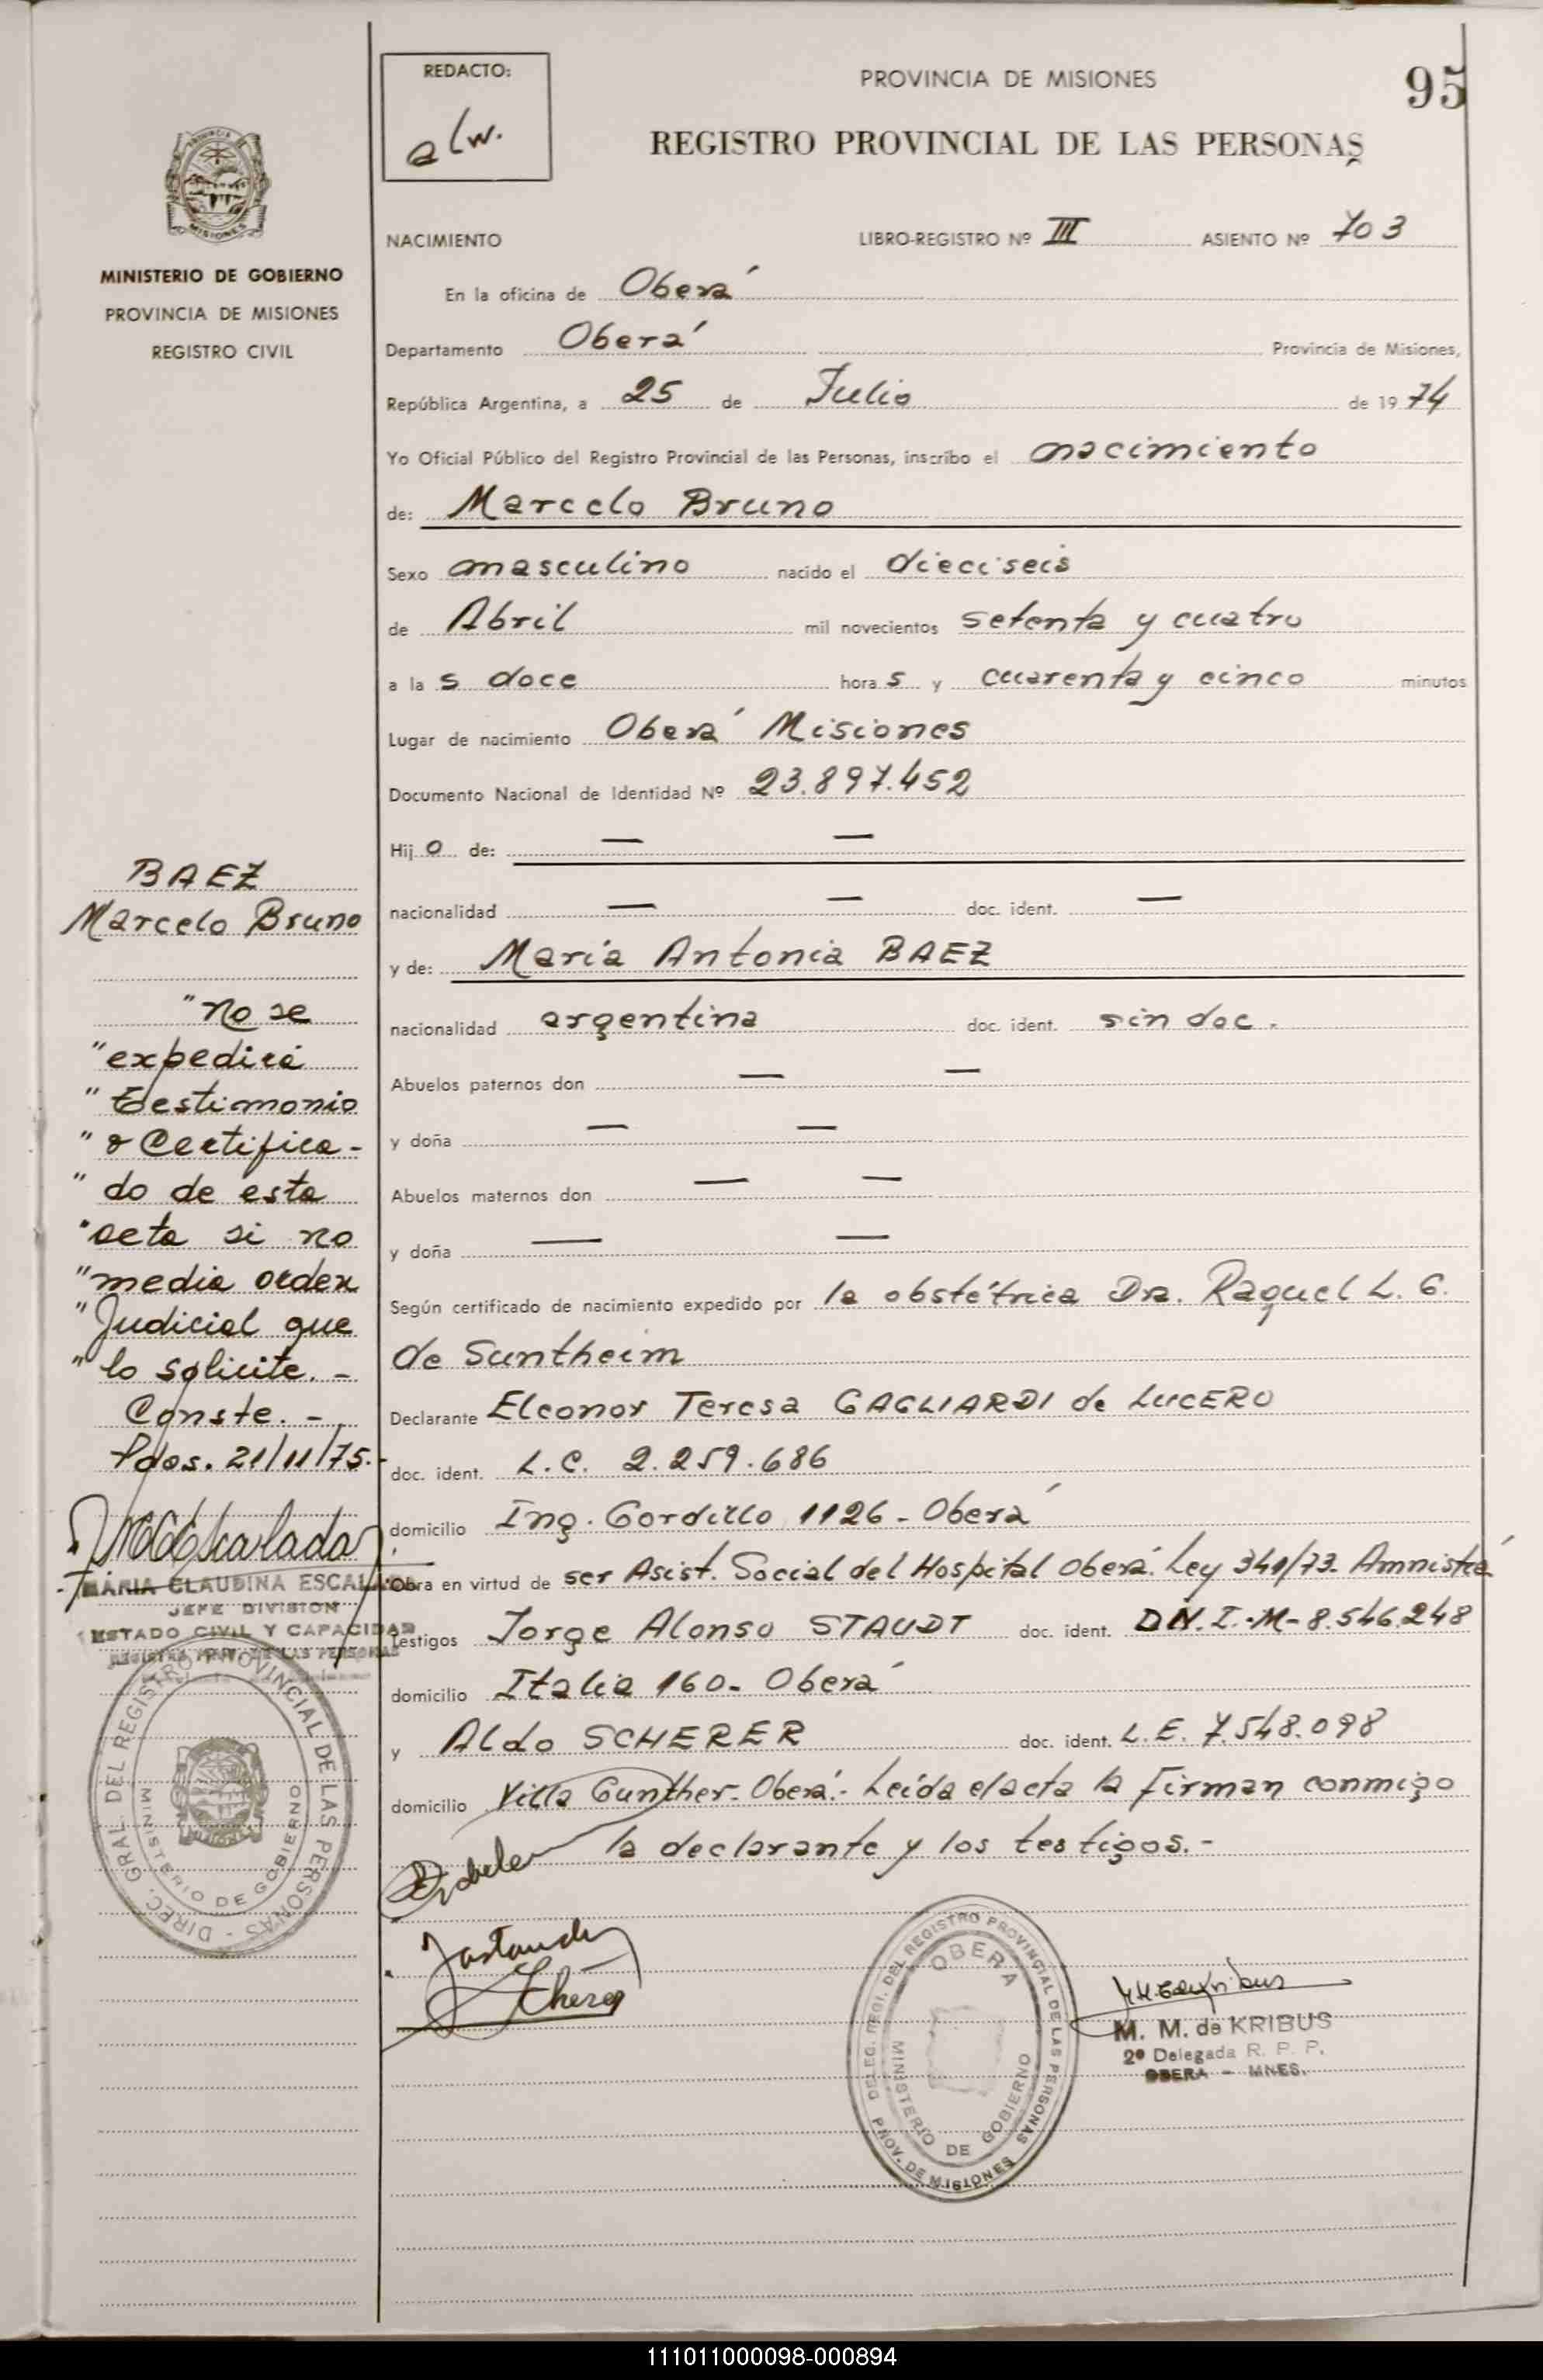 REDACTO:
alw.
PROVINCIA DE MISIONES
95
REGISTRO PROVINCIAL DE LAS PERSONAS
MINISTERIO DE GOBIERNO
PROVINCIA DE MISIONES
REGISTRO CIVIL
NACIMIENTO LIBRO-REGISTRO Nº III ASIENTO Nº 703
En la oficina de Oberá
Departamento Oberá Provincia de Misiones,
República Argentina, a 25 de Julio de 1974
Yo Oficial Público del Registro Provincial de las Personas, inscribo el nacimiento
de: Marcelo Bruno
Sexo masculino nacido el dieciseis
de Abril mil novecientos setenta y cuatro
a las doce horas y cuarenta y cinco minutos
Lugar de nacimiento Oberá Misiones
Documento Nacional de Identidad Nº 23.897.452
Hijo de: — —
nacionalidad — — doc. ident. —
y de: María Antonia BAEZ
nacionalidad argentina doc. ident. sin doc.
Abuelos paternos don — —
y doña — —
Abuelos maternos don — —
y doña — —
Según certificado de nacimiento expedido por la obstétrica Dra. Raquel L. G.
de Suntheim
Declarante Eleonor Teresa GAGLIARDI de LUCERO
doc. ident. L.C. 2.259.686
domicilio Ing. Gordillo 1126 - Oberá
Obra en virtud de ser Asist. Social del Hospital Oberá. Ley 340/73. Amnistía
Testigos Jorge Alonso STAUDT doc. ident. DN.I.-M-8.546.248
domicilio Italia 160- Oberá
y Aldo SCHERER doc. ident. L.E. 7.548.098
domicilio Villa Gunther- Oberá.- Leída el acta la firman conmigo
la declarante y los testigos.-
BAEZ
Marcelo Bruno
"No se
"expedirá
"testimonio
"o Certifica-
"do de esta
"acta si no
"media orden
"Judicial que
"lo solicite. -
Conste. -
Pdas. 21/11/75.-
MARIA CLAUDINA ESCALADA
JEFE DIVISION
ESTADO CIVIL Y CAPACIDAD
REGISTRO PROV. DE LAS PERSONAS
DIREC. GRAL. DEL REGISTRO PROVINCIAL DE LAS PERSONAS -
MINISTERIO DE GOBIERNO
DELEG. REGI. DEL REGISTRO PROVINCIAL DE LAS PERSONAS
OBERA
MINISTERIO DE GOBIERNO
PROV. DE MISIONES
M. M. de KRIBUS
2º Delegada R. P. P.
OBERA - MNES.
111011000098-000894